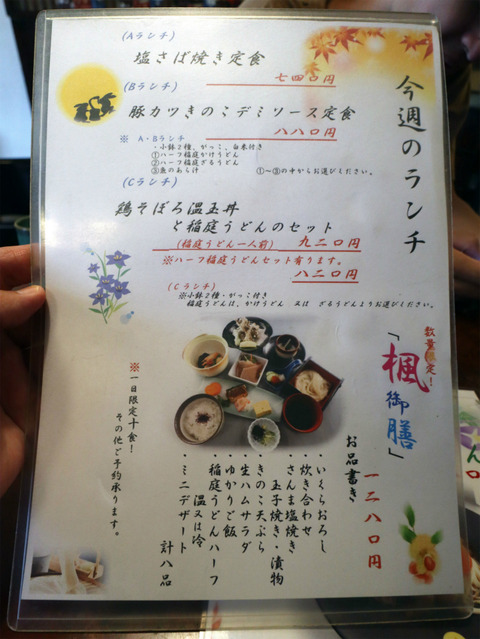 今週のランチ
(Aランチ)
塩さば焼き定食
七四〇円
(Bランチ)
豚カツきのこデミソース定食
八八〇円
※ A・Bランチ
・小鉢2種、がっこ、白米付き
①ハーフ稲庭かけうどん
②ハーフ稲庭ざるうどん
③魚のあら汁 ①~③の中からお選びください。
(Cランチ)
鶏そぼろ温玉丼
と稲庭うどんのセット
(稲庭うどん一人前) 九二〇円
※ハーフ稲庭うどんセット有ります。
八二〇円
(Cランチ)
※小鉢2種・がっこ付き
稲庭うどんは、かけうどん 又は ざるうどんよりお選びください。
数量限定!
「楓御膳」
一二八〇円
お品書き
・いくらおろし
・炊き合わせ
・さんま塩焼き
玉子焼き・漬物
・きのこ天ぷら
・生ハムサラダ
・ゆかりご飯
・稲庭うどんハーフ
温又は冷
・ミニデザート
計八品
※一日限定十食!
その他ご予約承ります。